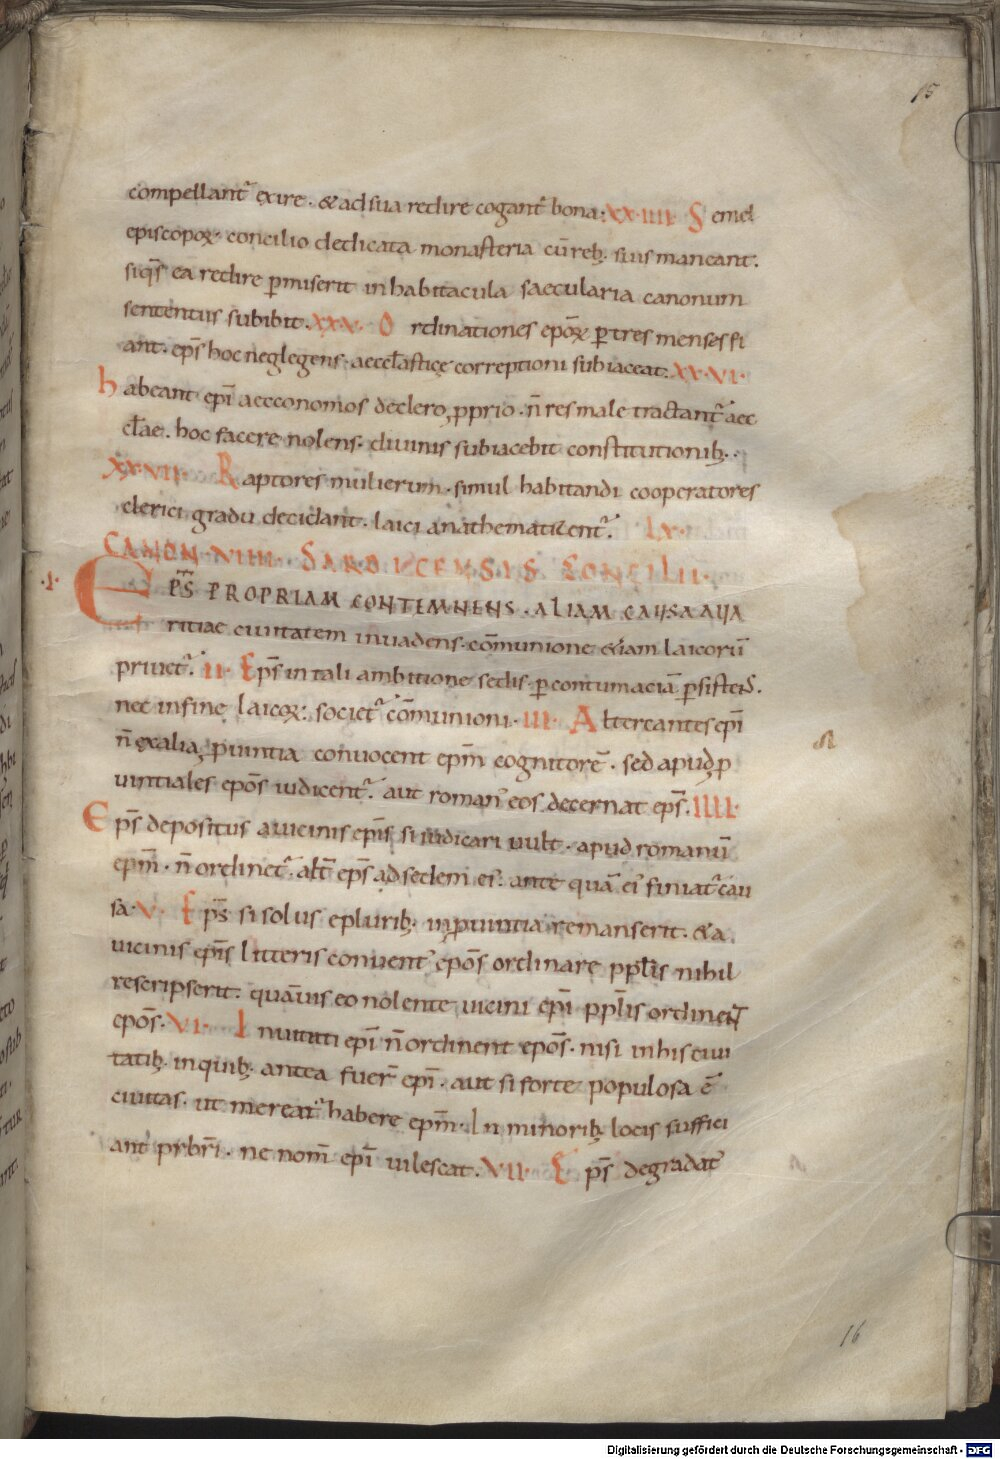 15
compellant̃ exire · & ad sua redire cogant̃ bona · XXIIII · Semel
episcopoꝝ · concilio dedicata monasteria cū reb; suis maneant.
siqͥs ea redire ꝑmiserit in habitacula saecularia canonum
sententiis subibit · XXV · Ordinationes ep̄oꝝ ꝑ tres menses fi
ant · ep̄s hoc neglegens · aeccl̄asticę correptioni subiaceat · XXVI ·
habeant ep̄i aeconomos declero ꝓprio · n̄ res male tractant̃ aec
cl̄ae · hoc facere nolens · divinis subiacebit constitutionib; ·
XXVII · Raptores mulierum · simul habitandi cooperatores
clerici gradu decidant · laici anathematizent̃ · LX ·
CANON · VIIII · SARDICENSIS CONCILII ·
· I · Ep̄s PROPRIAM CONTEMNENS · ALIAM CAUSA AUA
ritiae civitatem invadens · cōmunione &iam laicorū
privet̃ · II · Ep̄s in tali ambitione sedis · ꝑ contumaciā ꝑsistens ·
nec in fine laicoꝝ · societ̃ cōmunioni · III · Altercantes ep̄i
n̄ ex alia ꝓvintia convocent ep̄m cognitorē · sed apud ꝓ
vintiales ep̄os iudicent̃ · aut roman' eos decernat ep̄s · IIII ·
Ep̄s depositus a vicinis ep̄is si iudicari vult · apud romanū
ep̄m · n̄ ordinet̃ · alt̄ ep̄s ad sedem ei' · ante quā ei' finiat̃ cau
sa · V · Ep̄s si solus e plurib; in ꝓvintia remanserit · & a
vicinis ep̄is litteris convent' ep̄os ordinare ppl̄is nihil
rescripserit · quāvis eo nolente vicini ep̄i ppl̄is ordinent
ep̄os · VI · Invitati ep̄i n̄ ordinent ep̄os · nisi in his civi
tatib; in quib; antea fuer̄ ep̄i · aut si forte populosa ē
civitas · ut mereat̃ habere ep̄m · In minorib; locis suffici
ant prb̄ri · ne nom̄ ep̄i vilescat · VII · Ep̄s degradat'
16
Digitalisierung gefördert durch die Deutsche Forschungsgemeinschaft - DFG